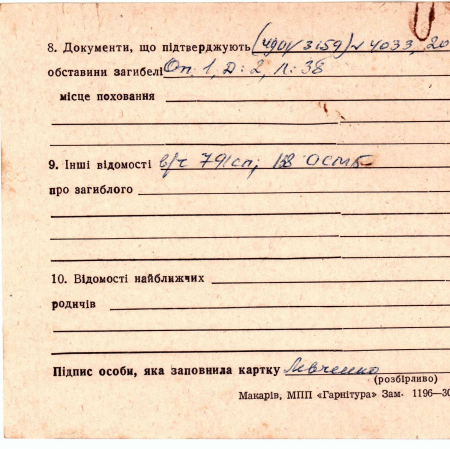 8. Документи, що підтверджують (4901/3159) 4033, 20
обставини загибелі Оп. 1, Д: 2, л: 38
місце поховання
9. Інші відомості в/ч 791сп;
про загиблого
10. Відомості найближчих
родичів
Підпис особи, яка заповнила картку Левченко
(розбірливо)
Макарів, МПП «Гарнітура» Зам. 1196—30